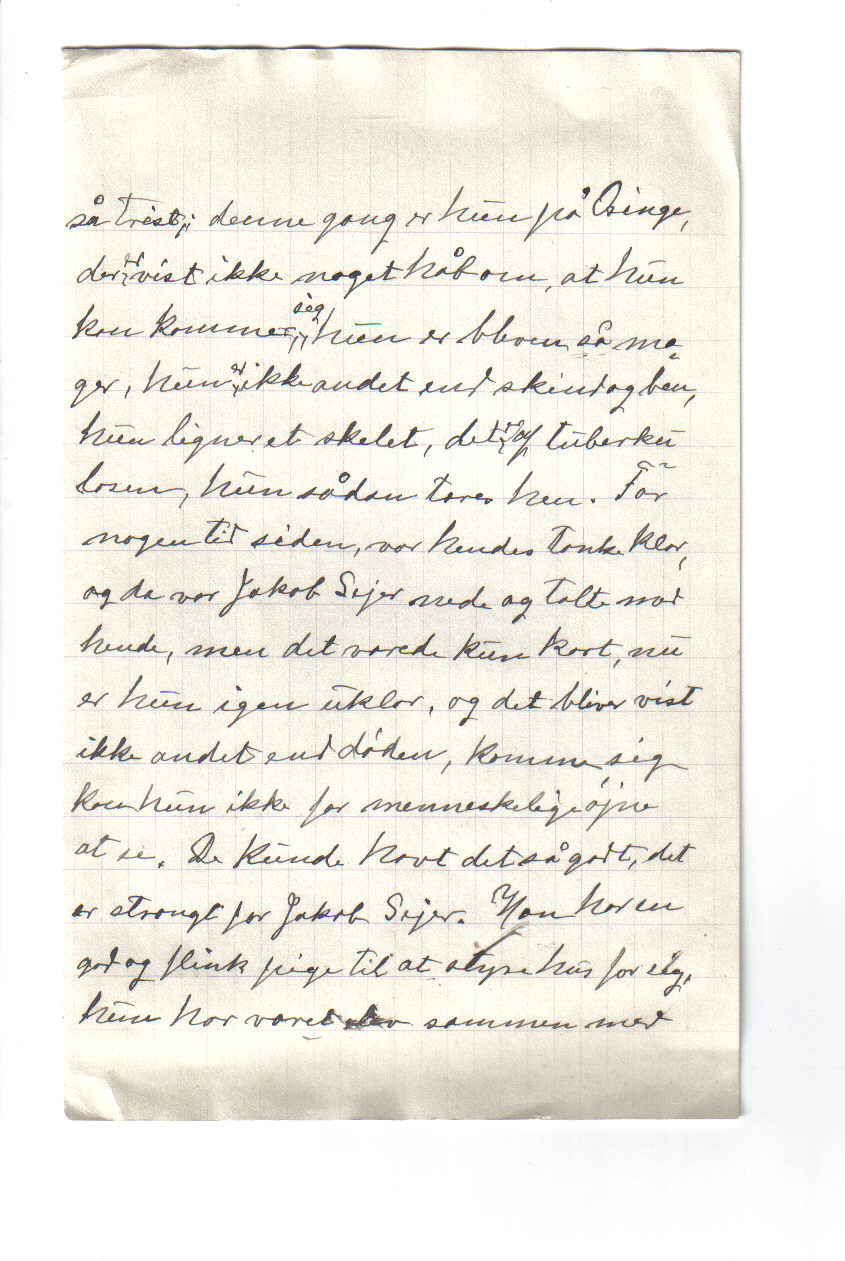 så trist, denne gang er hun på Osinge,
der er vist ikke noget håb om, at hun
kan komme sig, hun er bleven så ma
ger, hun er ikke andet end skind og ben,
hun ligner et skelet, det er af tuberku
losen, hun sådan tæres hen. For
nogen tid siden, var hendes tanke klar,
og da var Jakob Sejer nede og talte med
hende, men det varede kun kort, nu
er hun igen uklar, og det bliver vist
ikke andet end døden, komme sig
kan hun ikke for menneskelige øjne
at se. De kunde havt det så godt, det
er strængt for Jakob Sejer. Han har en
god og flink pige til at styre hus for sig,
hun har været elev sammen med